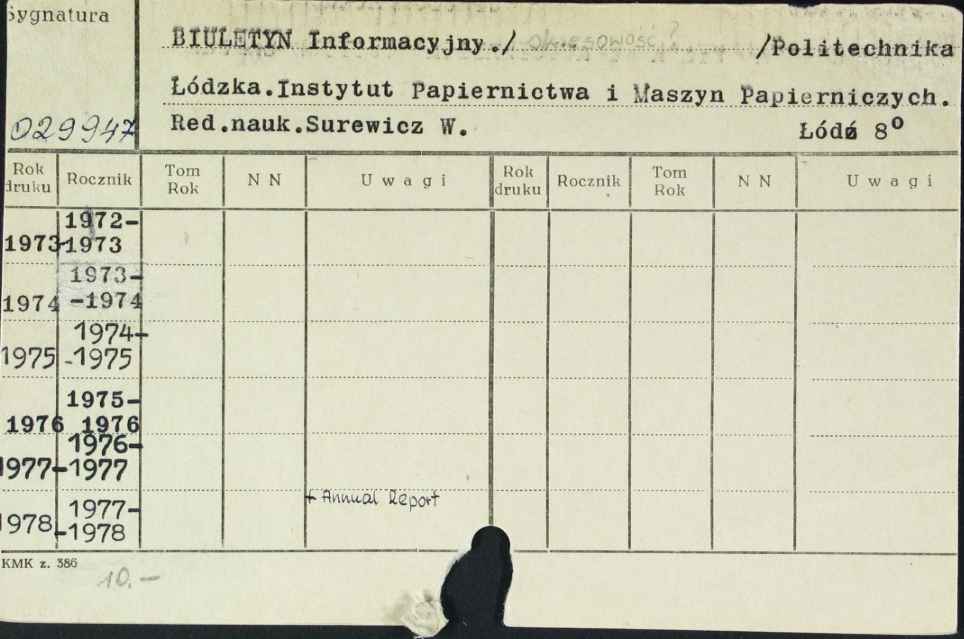 Sygnatura
BIULETYN Informacyjny./ okresowość? /Politechnika
Łódzka.Instytut Papiernictwa i Maszyn Papierniczych.
029947 Red.nauk.Surewicz W. Łódź 8º
Rok druku Rocznik Tom Rok N N Uwagi Rok druku Rocznik Tom Rok N N Uwagi
1972-
1973 -1973
1973-
1974 -1974
1974-
1975 -1975
1975-
1976 1976
1976-
1977 -1977
+ Annual Report
1977-
1978 -1978
KMK z. 386
10.-